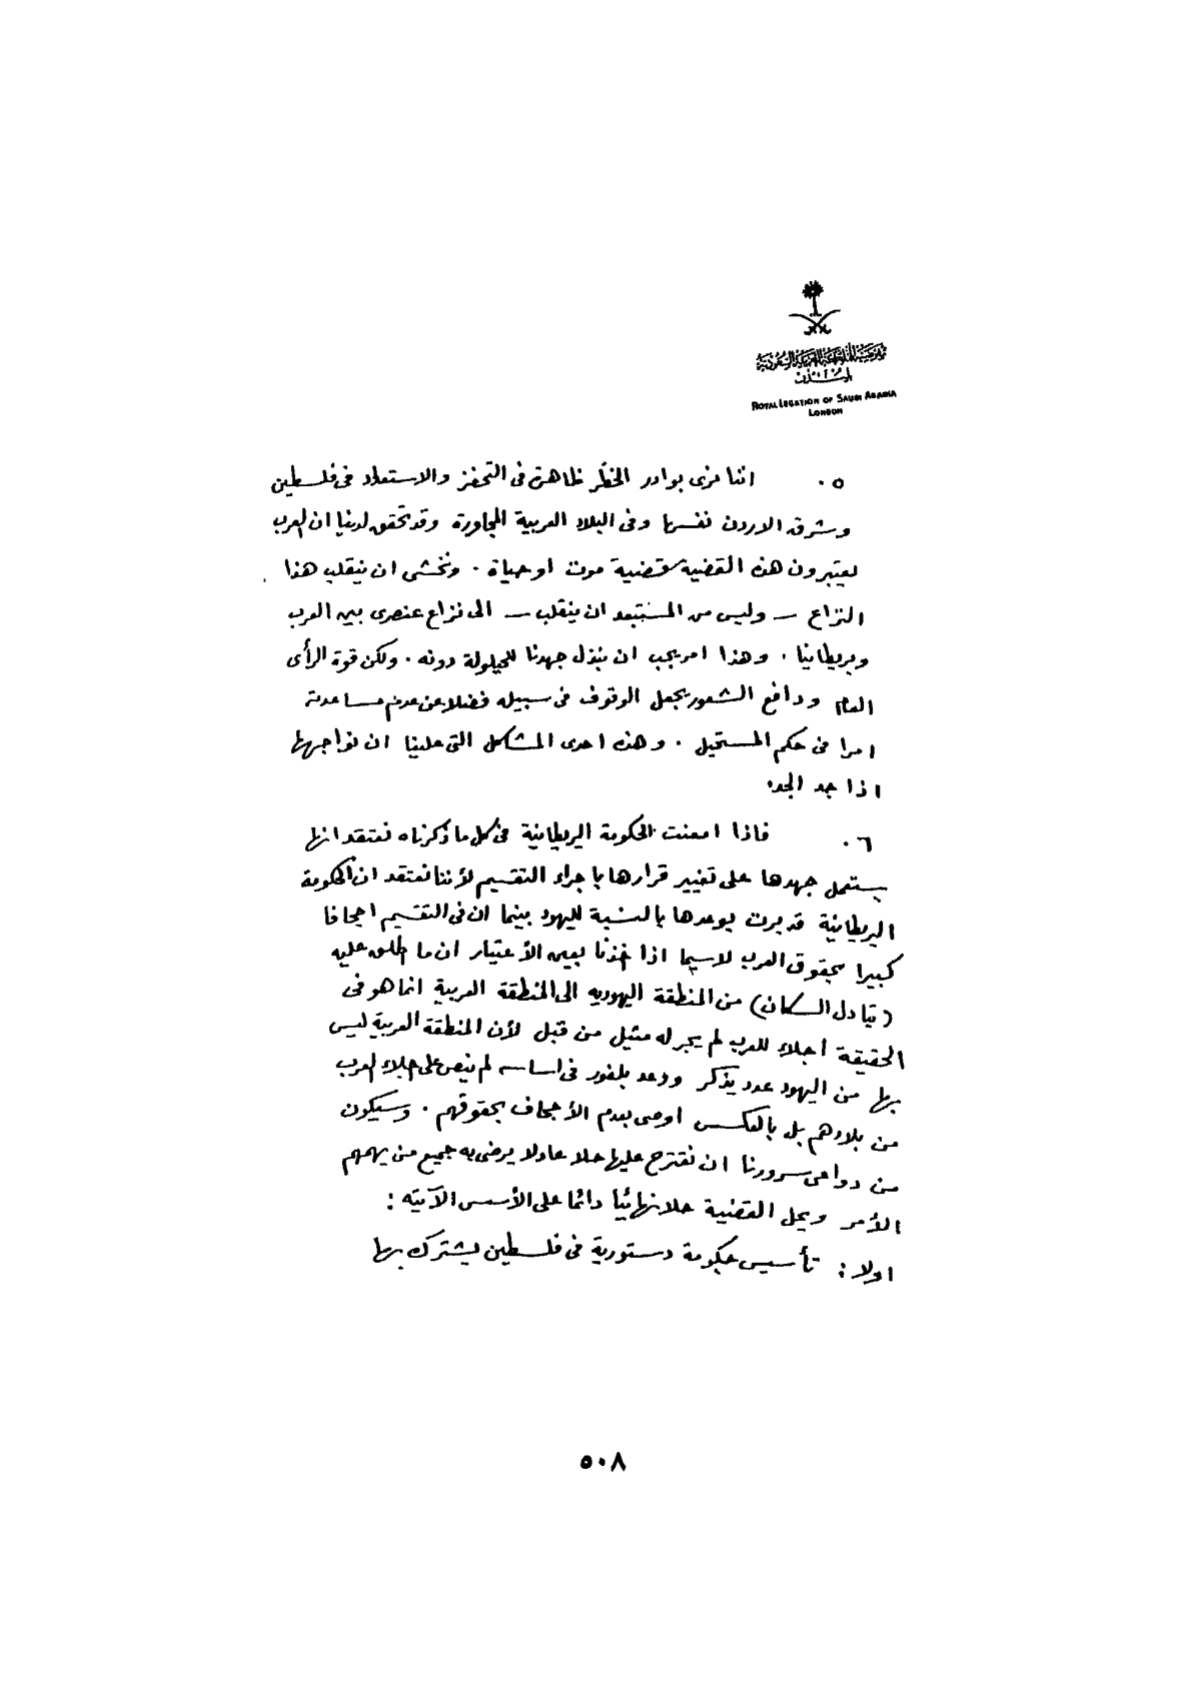 مفوضية المملكة العربية السعودية
لندن
ROYAL LEGATION OF SAUDI ARABIA
LONDON
٥٠ اننا نرى بوادر الخطر ظاهرة فى التحفز والاستعداد فى فلسطين
وشرق الاردن نفسها وفى البلاد العربية المجاورة وقد تحقق لدينا ان العرب
يعتبرون هذه القضية قضية موت او حياة . ونخشى ان ينقلب هذا
النزاع — وليس من المستبعد ان ينقلب — الى نزاع عنصرى بين العرب
وبريطانيا . وهذا امر يجب ان نبذل جهدنا للحيلولة دونه . ولكن قوة الرأى
العام ودافع الشعور يجعل الوقوف فى سبيله فضلا عن عدم مساعدته
امرا فى حكم المستحيل . وهذه احدى المشاكل التى علينا ان نواجهها
اذا جد الجد.
٦٠ فاذا امعنت الحكومة البريطانية فى كل ما ذكرناه نعتقد انها
ستعمل جهدها على تغيير قرارها باجراء التقسيم لأننا نعتقد ان الحكومة
البريطانية قد برت بوعدها بالنسبة لليهود بينما ان فى التقسيم اجحافا
كبيرا بحقوق العرب لاسيما اذا اخذنا بعين الأعتبار ان ما اطلق عليه
(تبادل السكان) من المنطقة اليهودية الى المنطقة العربية انما هو فى
الحقيقة اجلاء للعرب لم يجر له مثيل من قبل لأن المنطقة العربية ليس
بها من اليهود عدد يذكر ووعد بلفور فى اساسه لم ينص على اجلاء العرب
من بلادهم بل بالعكس اوصى بعدم الأجحاف بحقوقهم . وسيكون
من دواعى سرورنا ان نقترح عليها حلا عادلا يرضى به جميع من يهمهم
الأمر ويحل القضية حلا نهائيا دائما على الأسس الآتيه :
اولا : تأسيس حكومة دستورية فى فلسطين يشترك بها
٥٠٨